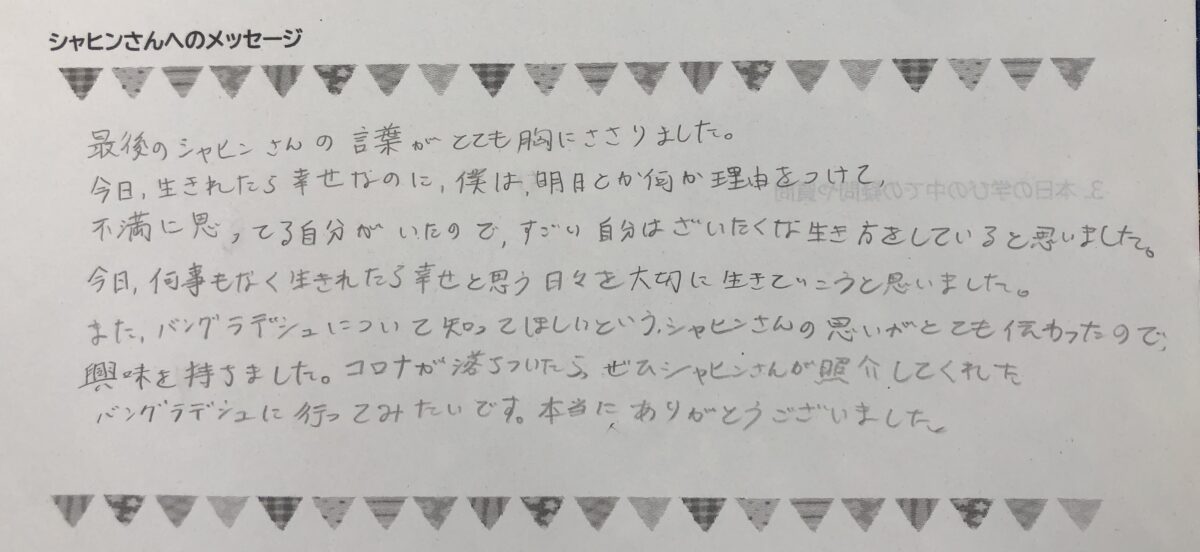 シャヒンさんへのメッセージ
最後のシャヒンさんの言葉がとても胸にささりました。
今日,生きれたら幸せなのに,僕は,明日とか何か理由をつけて,
不満に思ってる自分がいたので,すごい自分はぜいたくな生き方をしていると思いました。
今日,何事もなく生きれたら幸せと思う日々を大切に生きていこうと思いました。
また,バングラデシュについて知ってほしいという,シャヒンさんの思いがとても伝わったので,
興味を持ちました。コロナが落ちついたら,ぜひシャヒンさんが照介してくれた
バングラデシュに行ってみたいです。本当に,ありがとうございました。
3. 本日の学びの中での疑問や質問